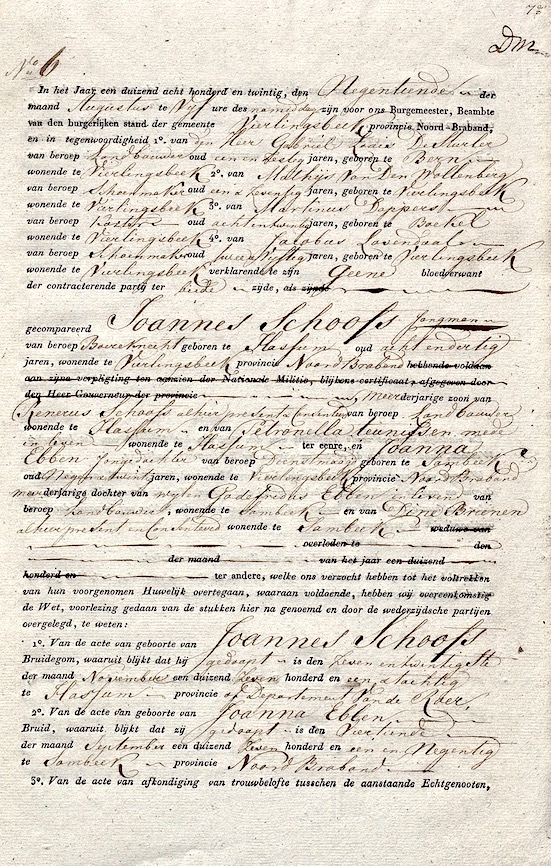 78
Dm
No 6
In het Jaar een duizend acht honderd en twintig, den Negentiende der
maand Augustus te Vijf ure des namiddag zijn voor ons Burgemeester, Beambte
van den burgerlijken stand der gemeente Vierlingsbeek provincie Noord-Braband,
en in tegenwoordigheid 1o. van den Heer Gabriel
van beroep Landbouwer oud een en zestig jaren, geboren te Bern
wonende te Vierlingsbeek 2o. van Mathijs Van Den Wollenberg
van beroep Schoenmaker oud een en zeventig jaren, geboren te Vierlingsbeek
wonende te Vierlingsbeek 3o. van Martinus Dappers
van beroep oud achtentwintig jaren, geboren te Boekel
wonende te Vierlingsbeek 4o. van Jacobus Lavendaal
van beroep Schoenmaker oud twee en vyftig jaren, geboren te Vierlingsbeek
wonende te Vierlingsbeek verklarende te zijn geene bloedverwant
der contracterende partij ter beide zijde, als zijnde
gecompareerd Joannes Schoofs Jongman
van beroep Bouwknecht geboren te Hassum oud acht endertig
jaren, wonende te Vierlingsbeek provincie Noord Braband hebbende voldaan
aan zijne verpligting ten aanzien der Nationale Militie, blijkens certificaat, afgegeven door
den Heer Gouverneur der provincie meerderjarige zoon van
Renerus Schoofs alhier present & Consenteerd van beroep Landbouwer
wonende te Hassum en van Petronella teunissen mede
in leven wonende te Hassum ter eenre, en Joanna
Ebben Jonge dochter van beroep Dienstmaagd geboren te Sambeek
oud Negen en twintig jaren, wonende te Vierlingsbeek provincie Noord Braband
meerderjarige dochter van wylen Godefridus Ebben in leven van
beroep Landbouwer wonende te Sambeek en van Dine Breenen
alhier present en Consenteerd wonende te Sambeek weduwe van
overloden te den
der maand van het jaar een duizend
honderd en ter andere, welke ons verzocht hebben tot het voltrekken
van hun voorgenomen Huwelijk overtegaan, waaraan voldoende, hebben wij overeenkomstig
de Wet, voorlezing gedaan van de stukken hier na genoemd en door de wederzijdsche partijen
overgelegd, te weten:
1o. Van de acte van geboorte van Joannes Schoofs
Bruidegom, waaruit blijkt dat hij gedoopt is den zeven en twintigste
der maand November een duizend zeven honderd en een en tachtig
te Hassum provincie of Departement Van de Roer
2o. Van de acte van geboorte van Joanna Ebben
Bruid, waaruit blijkt dat zij gedoopt is den Veertiende
der maand September een duizend zeven honderd en een en Negentig
te Sambeek provincie Noord Braband
3o. Van de acte van afkondiging van trouwbelofte tusschen de aanstaande Echtgenooten,